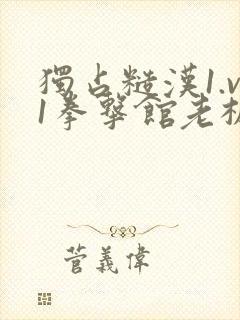 獨占糙漢1.v
1拳擊館老板
菅義偉